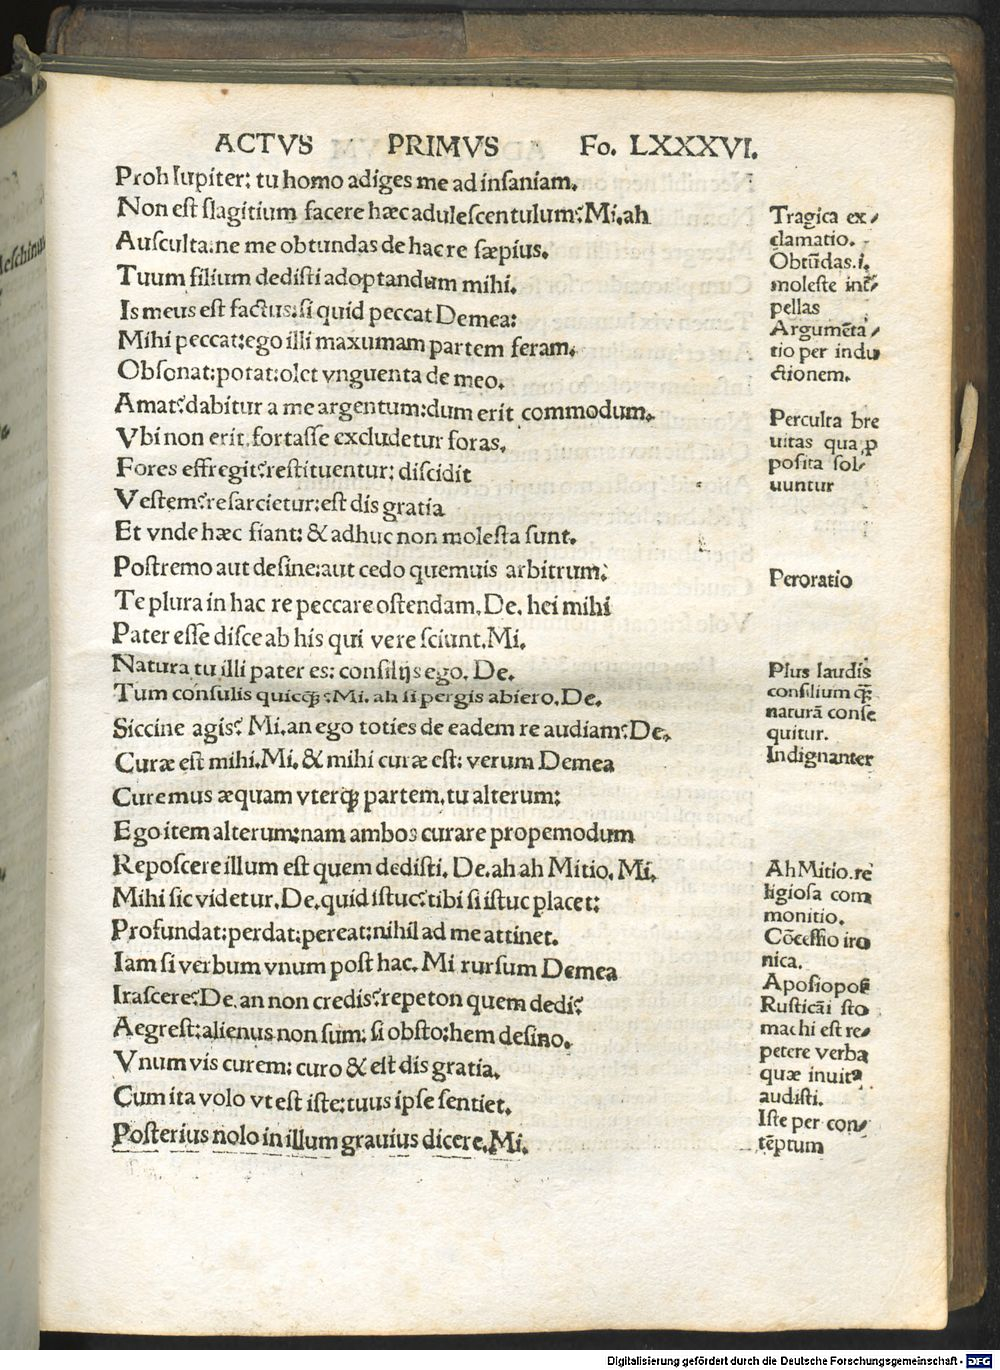 ACTVS PRIMVS Fo. LXXXVI.
Proh Iupiter: tu homo adiges me ad insaniam.
Non est flagitium facere hæc adulescentulum? Mi. ah
Ausculta: ne me obtundas de hac re sæpius.
Tuum filium dedisti adoptandum mihi.
Is meus est factus: si quid peccat Demea:
Mihi peccat: ego illi maxumam partem feram.
Obsonat: potat: olet vnguenta de meo.
Amat? dabitur a me argentum: dum erit commodum.
Vbi non erit, fortasse excludetur foras.
Fores effregit? restituentur: discidit
Vestem? resarcietur: est dis gratia
Et vnde hæc fiant: & adhuc non molesta sunt.
Postremo aut desine: aut cedo quemuis arbitrum:
Te plura in hac re peccare ostendam. De. hei mihi
Pater esse disce ab his qui vere sciunt. Mi.
Natura tu illi pater es: consilijs ego. De.
Tum consulis quicq̃? Mi. ah si pergis abiero. De.
Siccine agis? Mi. an ego toties de eadem re audiam? De.
Curæ est mihi. Mi. & mihi curæ est: verum Demea
Curemus æquam vterq; partem. tu alterum:
Ego item alterum: nam ambos curare propemodum
Reposcere illum est quem dedisti. De. ah ah Mitio. Mi.
Mihi sic videtur. De. quid istuc? tibi si istuc placet:
Profundat: perdat: pereat: nihil ad me attinet.
Iam si verbum vnum post hac. Mi rursum Demea
Irascere? De. an non credis? repeton quem dedi?
Aegrest: alienus non sum: si obsto: hem desino.
Vnum vis curem: curo & est dis gratia.
Cum ita volo vt est iste: tuus ipse sentiet.
Posterius nolo in illum grauius dicere. Mi.
Tragica ex/
clamatio.
Obtũdas .i.
moleste int̃/
pellas
Argumẽta/
tio per indu
ctionem.
Perculta bre
uitas qua ꝓ
posita sol/
uuntur
Peroratio
Plus laudis
consilium q̃
naturã conse
quitur.
Indignanter
Ah Mitio. re
ligiosa com
monitio.
Cõcessio iro
nica.
Aposiopoẽ
Rusticãi sto
machi est re/
petere verba
quæ inuita
audisti.
Iste per con/
tẽptum
Digitalisierung gefördert durch die Deutsche Forschungsgemeinschaft - DFG